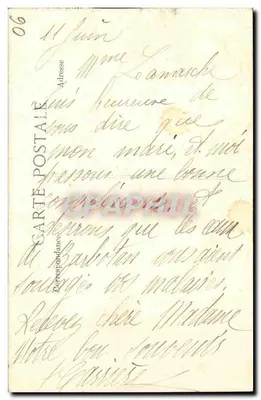 06
11 Juin
Mme Lamarche
suis heureuse de
vous dire que
mon mari, et moi
passons une bonne
et
espérons que les eaux
de Barbotan vous aient
soulagés vos malaises.
Recevez chère Madame
Notre bon souvenir
CARTE POSTALE
Correspondance
Adresse
CPAPHIL